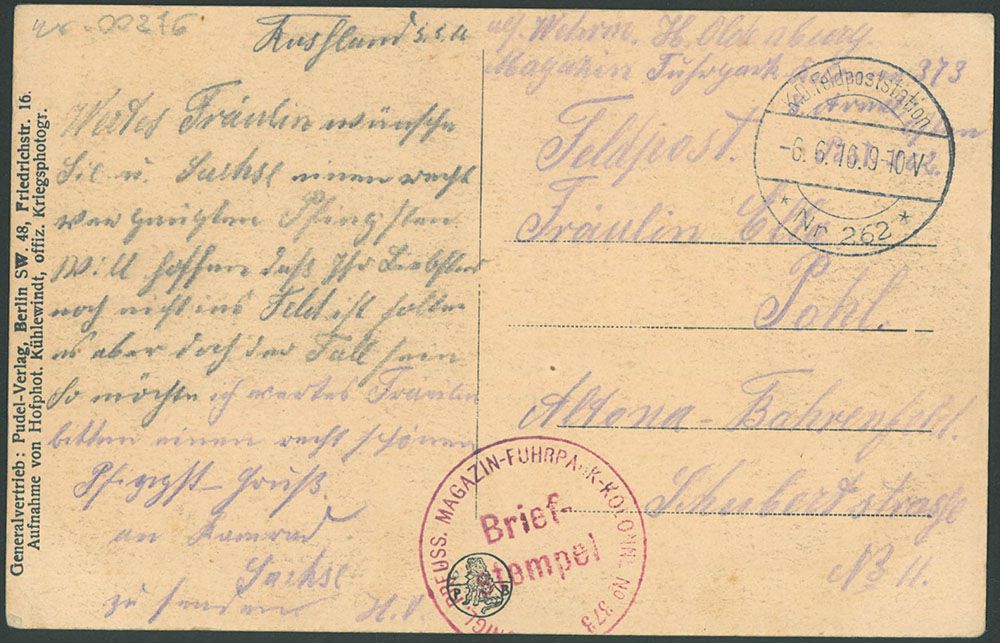 Generalvertrieb: Pudel-Verlag, Berlin SW. 48, Friedrichstr. 16.
Aufnahme von Hofphot. Kühlewindt, offiz. Kriegsphotogr.
Rußland
Wertes Fräulein wünsche
Sie u. Sachse einen recht
vergnügten Pfingsten
Will hoffen daß Ihr Liebster
noch nicht ins Feld ist sollte
es aber doch der Fall sein
So möchte ich wertes Fräulein
bitten einen recht schönen
Pfingst-Gruß
an Kamrad
Sachse
zu senden H. O.
Wehrm. H. Oldenburg
Magazin Fuhrpark Kol. 373
Feldpost.
Fräulein
Pohl.
Altona-Bahrenfeld.
Schubertstraße
No 11.
K.D. Feldpoststation
-6.6.16.9-10V
* Nr. 262 *
KÖNIGL. PREUSS. MAGAZIN-FUHRPARK-KOLONNE No 373
Brief-
stempel
P B